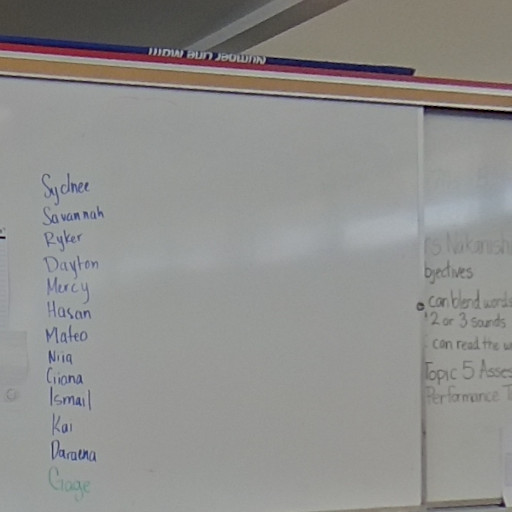 Number Line Mat!!!
Sydnee
Savannah
Ryker
Dayton
Mercy
Hasan
Mateo
Nita
Giana
Ismail
Kai
Daraena
Gage
bjectives
can blend words
2 or 3 sounds
can read the w
Topic 5 Asses
Performance T